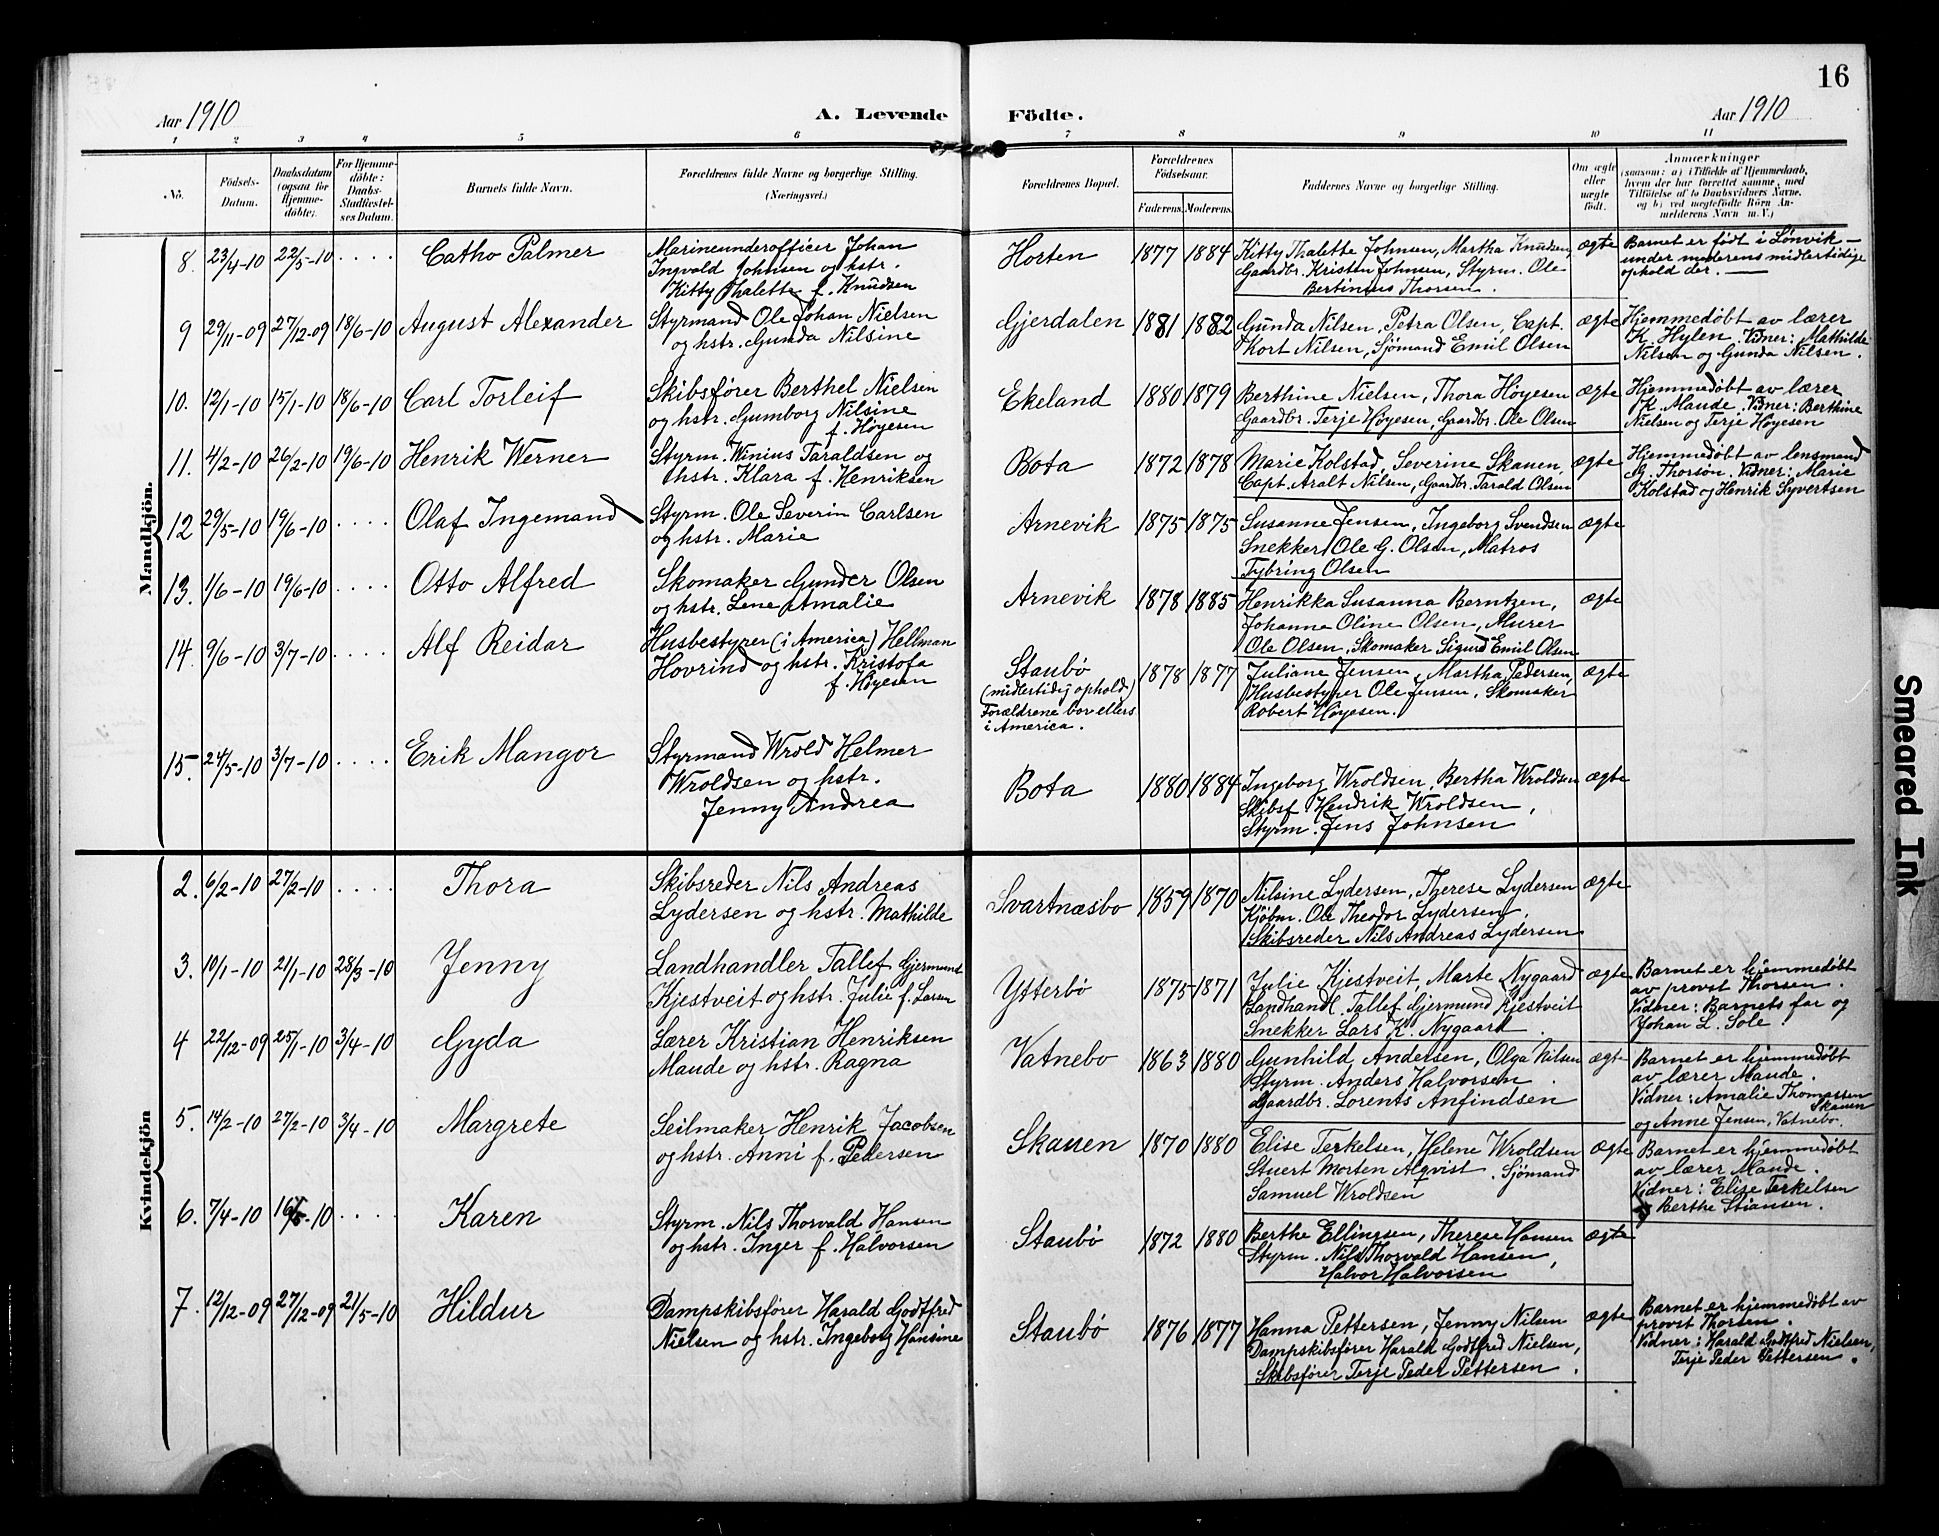 16
Aar 1910
A. Levende Födte.
Aar 1910
1 2 3 4 5 6 7 8 9 10 11
No.
Födsels-
Datum.
Daabsdatum
(ogsaa for
Hjemme-
döbte).
For Hjemme-
döbte:
Daabs-
Stadfæstel-
ses Datum.
Barnets fulde Navn.
Forældrenes fulde Navne og borgerlige Stilling.
(Næringsvei.)
Forældrenes Bopæl.
Forældrenes
Födselsaar.
Faderens. Moderens.
Faddernes Navne og borgerlige Stilling.
Om ægte
eller
uægte
födt.
Anmærkninger
(saasom: a) i Tilfælde af Hjemmedaab,
hvem der har forrettet samme, med
Tilföielse af to Daabsvidners Navne,
og b) ved uægtefödte Börn An-
melderens Navn m. V.)
Mandkjön.
8. 23/4-10 22/5-10 . . . . Catho Palmer
Marineunderofficer Johan
Ingvald Johnsen og hstr.
Kitty Thalette f. Knudsen
Horten 1877 1884
Kitty Thalette Johnsen, Martha Knudsen,
Gaardbr. Kristen Johnsen, Styrm. Ole
Bertinius Thorsen.
ægte
Barnet er født i Lønvik –
under moderens midlertidige
ophold der. —
9 29/11-09 27/12-09 18/6-10 August Alexander
Styrmand Ole Johan Nielsen
og hstr. Gunda Nilsine
Gjerdalen 1881 1882
Gunda Nilsen, Petra Olsen, Capt.
Kort Nilsen, Sjömand Emil Olsen
ægte
Hjemmedøbt av lærer
K. Hylen. Vidner: Mathilde
Nilsen og Gunda Nilsen.
10. 12/1-10 15/1-10 18/6-10 Carl Torleif
Skibsfører Berthel Nielsen
og hstr. Gumborg Nilsine
f. Høyesen
Ekeland 1880 1879
Berthine Nielsen, Thora Höyesen
Gaardbr. Terje Höyesen, Gaardbr. Ole Olsen
ægte
Hjemmedøbt av lærer
K. Maude. Vidner: Berthine
Nielsen og Terje Høyesen
11. 4/2-10 26/2-10 19/6-10 Henrik Werner
Styrm. Winius Taraldsen og
hstr. Klara f. Henriksen
Bota 1872 1878
Marie Kolstad, Severine Skauen,
Capt. Aralt Nilsen, Gaardbr. Tarald Olsen
ægte
Hjemmedøbt av lensmand
G. Thorsøn. Vidner: Marie
Kolstad og Henrik Syvertsen
12 29/5-10 19/6-10 . . . . Olaf Ingemand
Styrm. Ole Severin Carlsen
og hstr. Marie
Arnevik 1875 1875
Susanne Jensen, Ingeborg Svendsen
Snekker Ole G. Olsen, Matros
Tybring Olsen
ægte
13. 1/6-10 19/6-10 . . . . Otto Alfred
Skomaker Gunder Olsen
og hstr. Lene Amalie
Arnevik 1878 1885
Henrikka Susanna Berntzen,
Johanna Oline Olsen, Murer
Ole Olsen, Skomaker Sigurd Emil Olsen
ægte
14. 9/6-10 3/7-10 . . . . Alf Reidar
Husbestyrer (i America) Hellman
Hovrind og hstr. Kristofa
f. Høyesen
Staubø
(midlertidig ophold)
Forældrene bor ellers
i America.
1878 1877
Juliane Jensen, Martha Pedersen,
Husbestyrer Ole Jensen, Skomaker
Robert Høyesen.
ægte
15. 24/5-10 3/7-10 . . . . Erik Mangor
Styrmand Wrold Helmer
Wroldsen og hstr.
Jenny Andrea
Bota 1880 1884
Ingeborg Wroldsen, Bertha Wroldsen
Skibsf. Hendrik Wroldsen,
Styrm. Jens Johnsen
ægte
Kvindekjön
2. 6/2-10 27/2-10 . . . . Thora
Skibsreder Nils Andreas
Lydersen og hstr. Mathilde
Svartnæsbo 1859 1870
Nilsine Lydersen, Therese Lydersen
Kjøbm. Ole Theodor Lydersen,
Skibsreder Nils Andreas Lydersen
ægte
3. 10/1-10 21/1-10 28/3-10 Jenny
Landhandler Tallef Gjermund
Kjestveit og hstr. Julie f. Larsen
Ytterbö 1875 1871
Julie Kjestveit, Marte Nygaard
Landhandl. Tallef Gjermund Kjestveit
Snekker Lars K. Nygaard.
ægte
Barnet er hjemmedøbt
av provst Thorsen.
Vidner: Barnets far og
Johan L. Sole.
4 22/12-09 25/1-10 3/4-10 Gyda
Lærer Kristian Henriksen
Maude og hstr. Ragna
Vatnebo 1863 1880
Gunhild Andersen, Olga Nilsen
Styrm. Anders Halvorsen.
Gaardbr. Lorents Anfindsen
ægte
Barnet er hjemmedøbt
av lærer Maude.
Vidner: Amalie Thomassen
Skauen
og Anne Jensen, Vatnebo.
5. 14/2-10 27/2-10 3/4-10 Margrete
Seilmaker Henrik Jacobsen
og hstr. Anni f. Pedersen
Skauen 1870 1880
Elise Terkelsen, Helene Wroldsen
Stuert Morten Alqvist. Sjömand
Samuel Wroldsen
ægte
Barnet er hjemmedøbt
av lærer Maude.
Vidner: Elise Terkelsen
og Berthe Stiansen.
6. 7/4-10 16/5-10 . . . . Karen
Styrm. Nils Thorvald Hansen
og hstr. Inger f. Halvorsen
Staubö 1872 1880
Berthe Ellingsen, Therese Hansen
Styrm. Nils Thorvald Hansen,
Halvor Halvorsen
ægte
7. 12/12-09 27/12-09 21/5-10 Hildur
Dampskibsfører Harald Godtfred
Nielsen og hstr. Ingeborg Hansine
Staubö 1876 1877
Hanna Pettersen, Jenny Nilsen
Dampskibsfører Harald Godtfred Nielsen,
Skibsfører Terje Peder Pettersen.
ægte
Barnet er hjemmedøbt av
provst Thorsen.
Vidner: Harald Godtfred Nielsen,
Terje Peder Pettersen.
Smeared Ink